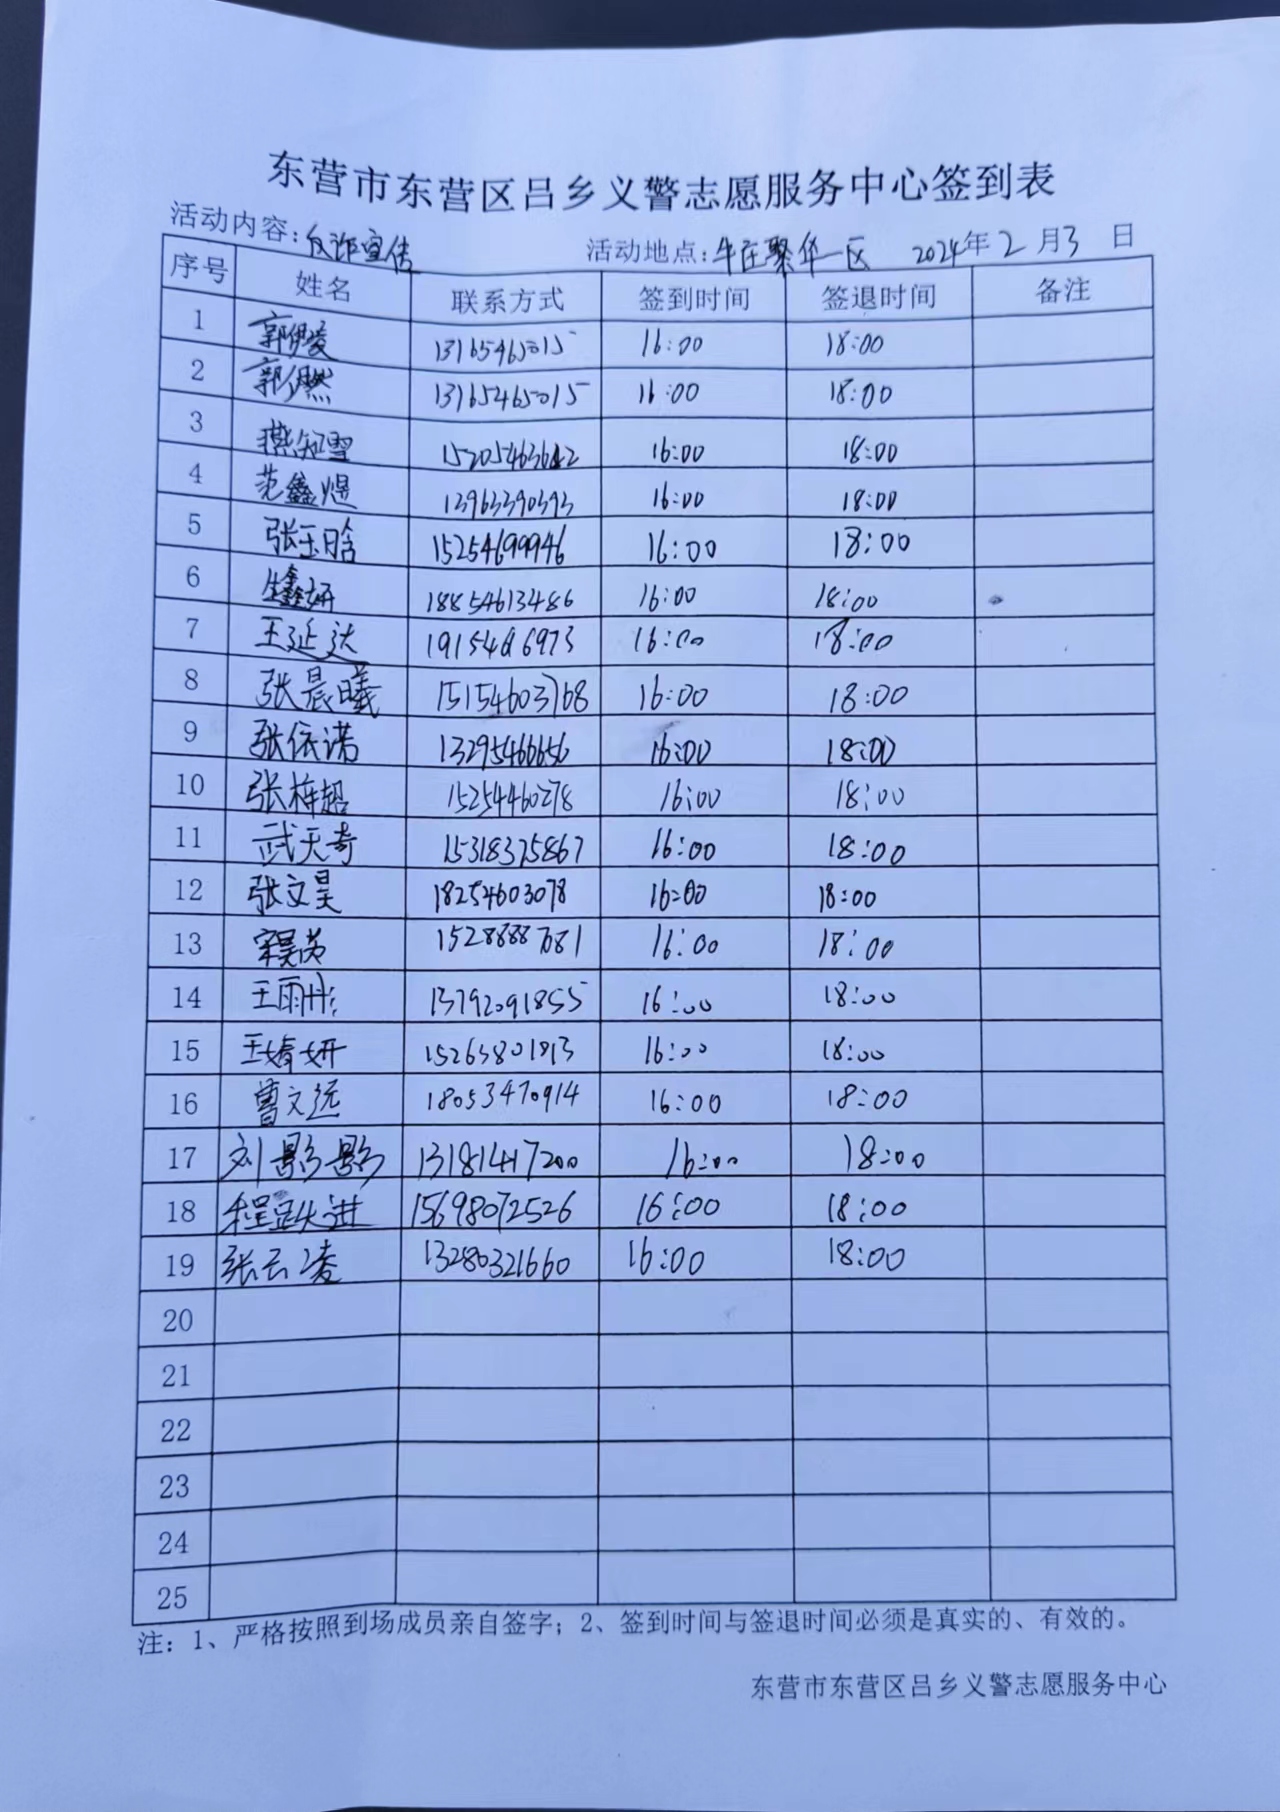 东营市东营区吕乡义警志愿服务中心签到表
活动内容:反诈宣传 活动地点:牛庄聚华一区 2024年2月3日
序号 姓名 联系方式 签到时间 签退时间 备注
1 郭伊凌 13165465015 16:00 18:00
2 郭伊然 13165465015 16:00 18:00
3 燕知雪 15205463642 16:00 18:00
4 范鑫煜 13963390393 16:00 18:00
5 张玉晗 15254699946 16:00 18:00
6 生鑫妍 18854613486 16:00 18:00
7 王延达 16:00 18:00
8 张晨曦 15154603768 16:00 18:00
9 张依诺 13295466656 16:00 18:00
10 张梓超 15254460278 16:00 18:00
11 武天奇 15318375867 16:00 18:00
12 张文昊 18254603078 16:00 18:00
13 16:00 18:00
14 王雨彤 13792091855 16:00 18:00
15 王婧妍 16:00 18:00
16 曾文远 18053470914 16:00 18:00
17 刘影影 13181417200 16:00 18:00
18 程跃进 15698072526 16:00 18:00
19 张云凌 13280321660 16:00 18:00
20
21
22
23
24
25
注：1、严格按照到场成员亲自签字；2、签到时间与签退时间必须是真实的、有效的。
东营市东营区吕乡义警志愿服务中心